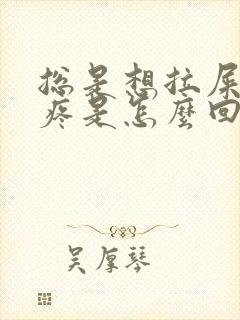 总是想拉屎
疼是怎麼回
吴厚琴